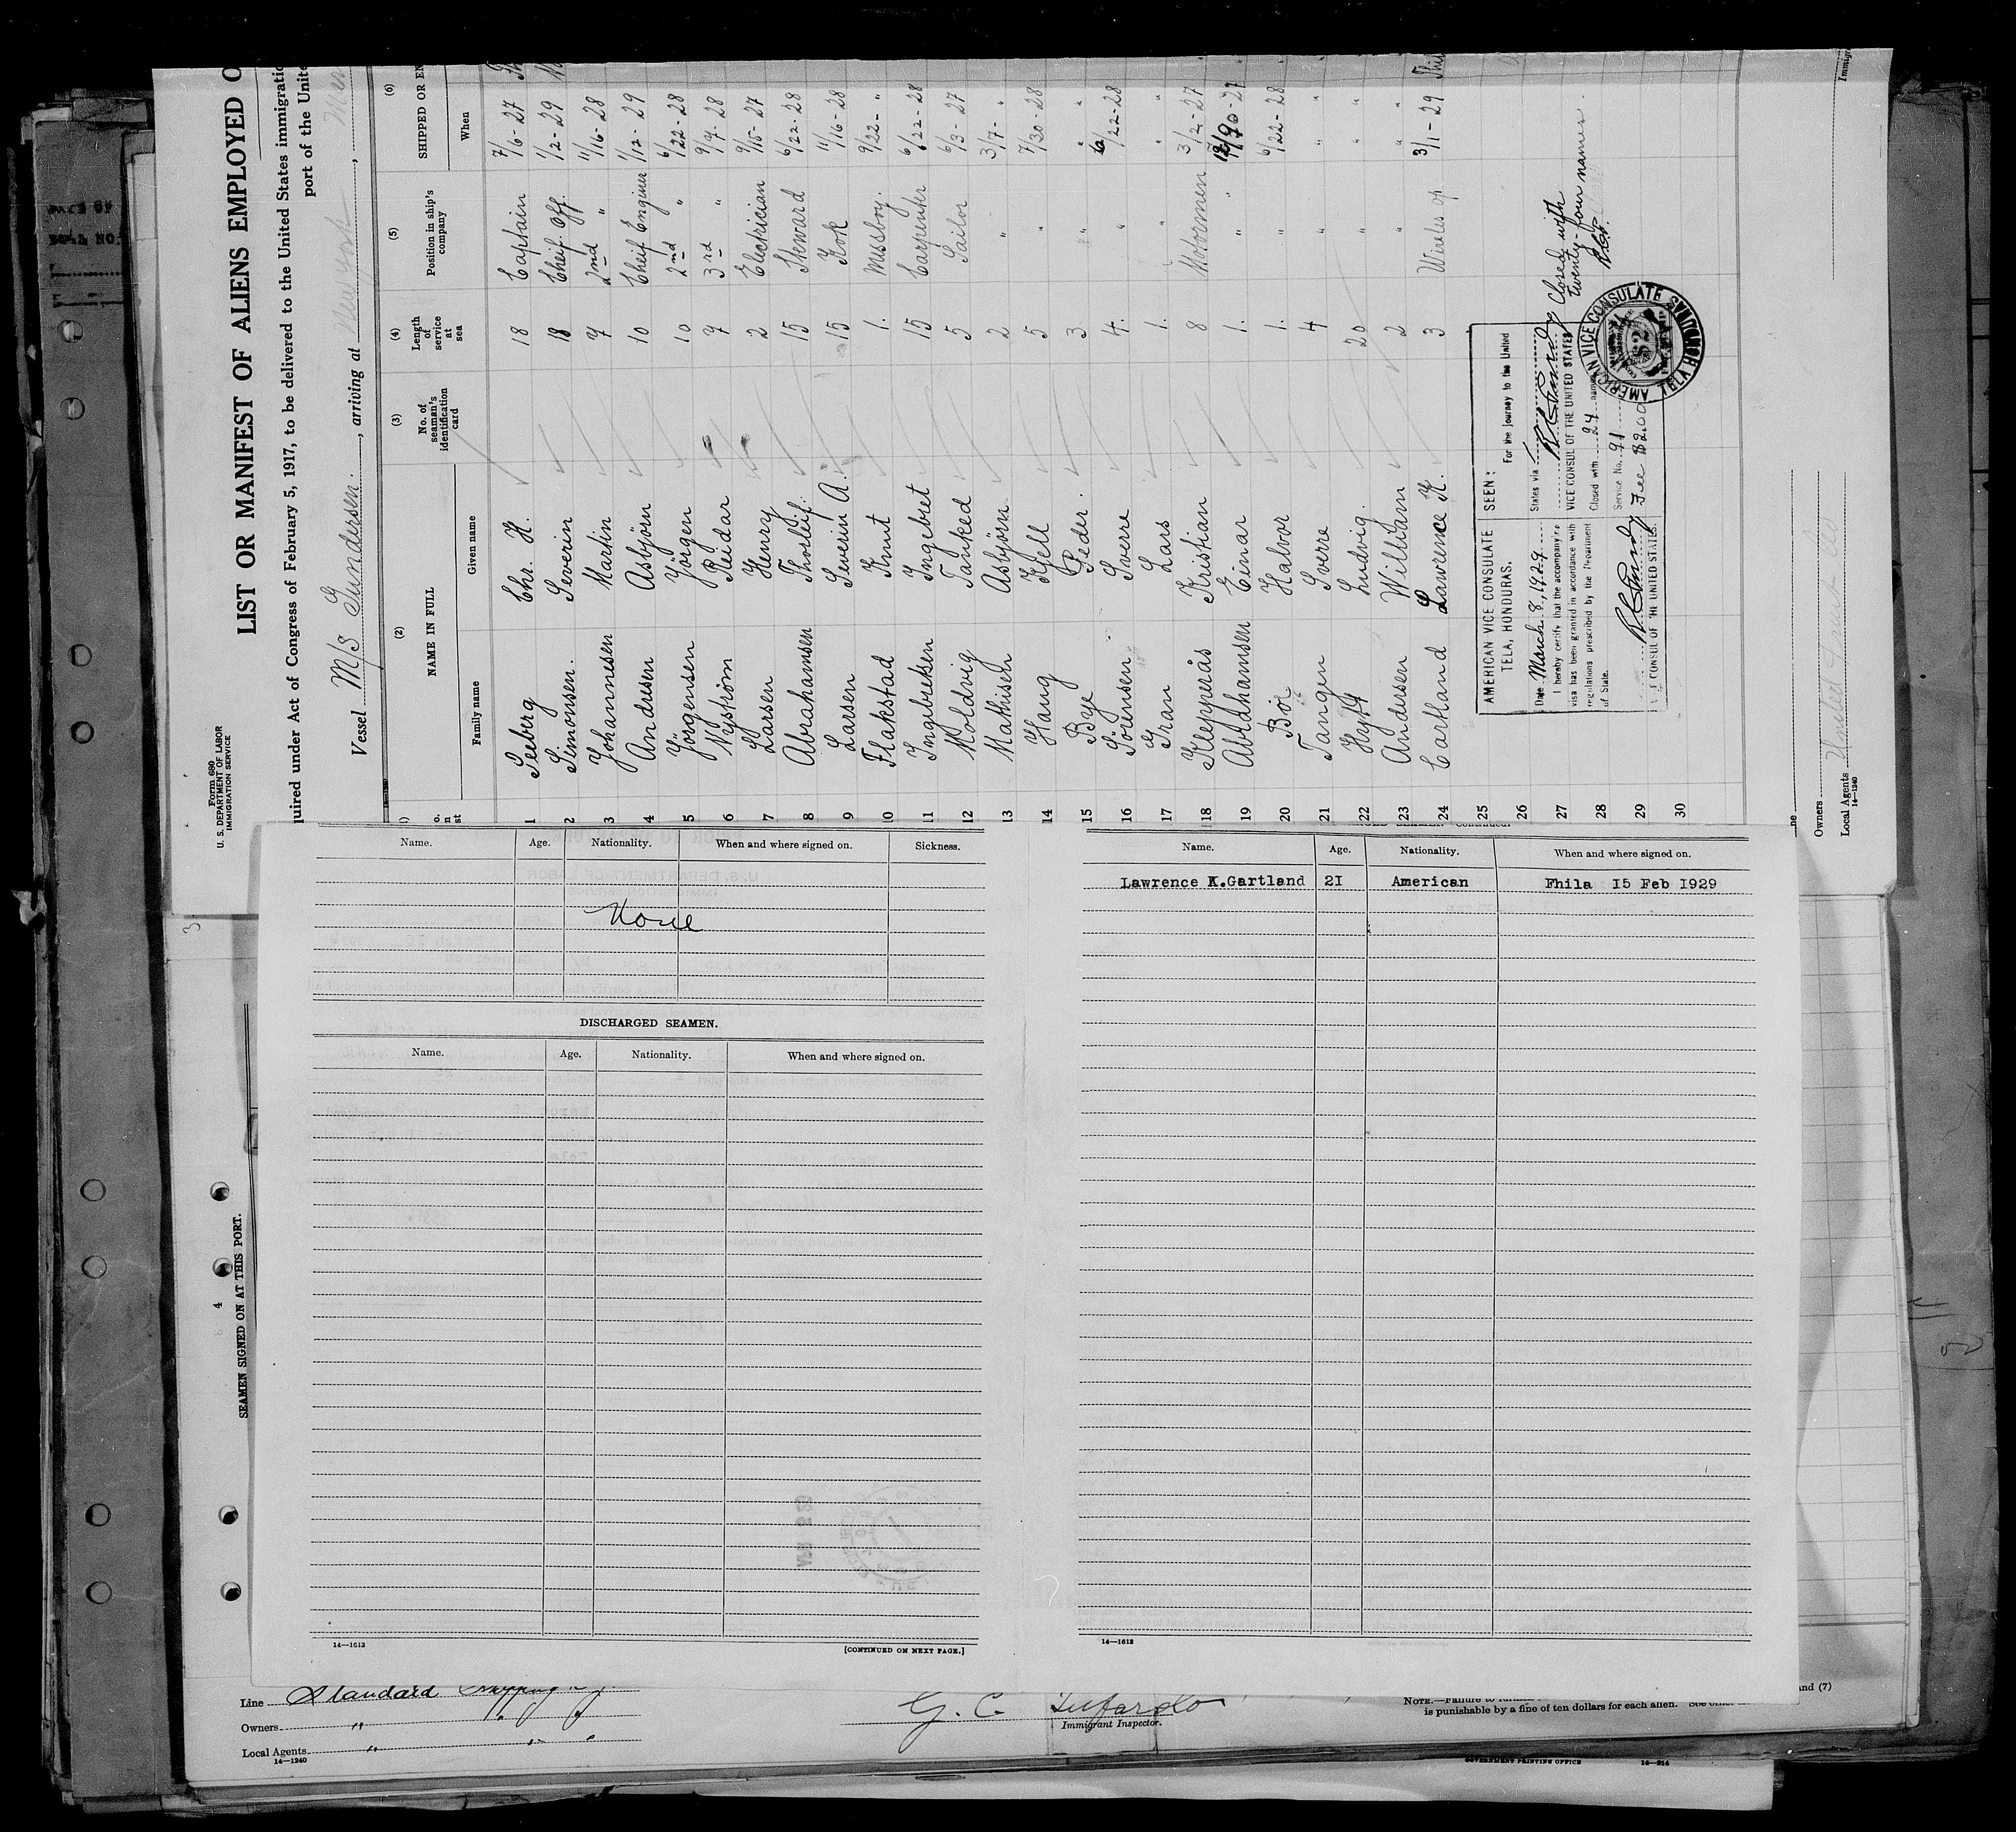 Form 680
U. S. DEPARTMENT OF LABOR
IMMIGRATION SERVICE
LIST OR MANIFEST OF ALIENS EMPLOYED O
quired under Act of Congress of February 5, 1917, to be delivered to the United States immigratio
port of the Unite
Vessel M/S Gundersen., arriving at New York,
(2) (3) (4) (5) (6)
NAME IN FULL No. of seaman's identification card Length of service at sea Position in ship's company SHIPPED OR EN
Family name Given name When
1 Seeberg Chr. H. 18 Captain 7/6-27
2 Simonsen. Severin 18 Cheif. Off. 1/2-29
3 Johannesen Martin 7 2nd " 11/16-28
4 Andresen Asbjörn 10 Cheif Enginer 1/12-29
5 Jörgensen Jörgen 10 2nd " 6/22-28
6 Nyström Reidar 7 3rd " 9/7-28
7 Larsen Henry 2 Electrician 9/15-27
8 Abrahamsen Thorleif. 15 Steward 6/22-28
9 Larsen Severin A. 15 Kok 11/16-28
10 Flakstad Knut 1. Missboy. 9/22- "
11 Ingebretsen Ingebret 15 Carpenter 6/22-28
12 Moldvig Tanked 5 Sailor 6/3-27
13 Mathisen Asbjørn. 2 " 3/7- "
14 Haug Kjell 5 " 7/30-28
15 Bye Peder. 3 " "
16 Sörensen. Sverre 4. " 6/22-28
17 Gran Lars 1. " "
18 Klepperås Kristian 8 Motormen 3/2-27
19 Abrahamsen Einar 1. "
20 Bö Halvor 1. " 6/22-28
21 Tangen Sverre 4 " "
22 Hytt Ludvig. 20 " "
23 Andersen William 2 " "
24 Cartland Lawrence K. 3 Wireles op 3/1-29
25
26
27
28
29
30
AMERICAN VICE CONSULATE
TELA, HONDURAS.
Date March 8, 1929
I hereby certify that the accompany'g
visa has been granted in accordance with
regulations prescribed by the Department
of State.
E CONSUL OF THE UNITED STATES.
SEEN:
For the journey to the United
States via
VICE CONSUL OF THE UNITED STATES
Closed with 24 names
Service No. 91
Fee $2.00
AMERICAN VICE CONSULATE
TELA HONDURAS
$2
Closed with
twenty-four names.
Owners
Local Agents United Fruit Co
14—1240
Name. Age. Nationality. When and where signed on. Sickness.
None
DISCHARGED SEAMEN.
Name. Age. Nationality. When and where signed on.
14—1613 [CONTINUED ON NEXT PAGE.]
Continued.
Name. Age. Nationality. When and where signed on.
Lawrence K.Gartland 21 American Fhila 15 Feb 1929
14—1613
3
4
SEAMEN SIGNED ON AT THIS PORT.
Line Standard Shipping
Owners " " "
Local Agents " " "
14—1240
G. C. Tufarolo
Immigrant Inspector.
NOTE.—Failure to
is punishable by a fine of ten dollars for each alien.
and (7)
GOVERNMENT PRINTING OFFICE 14—214